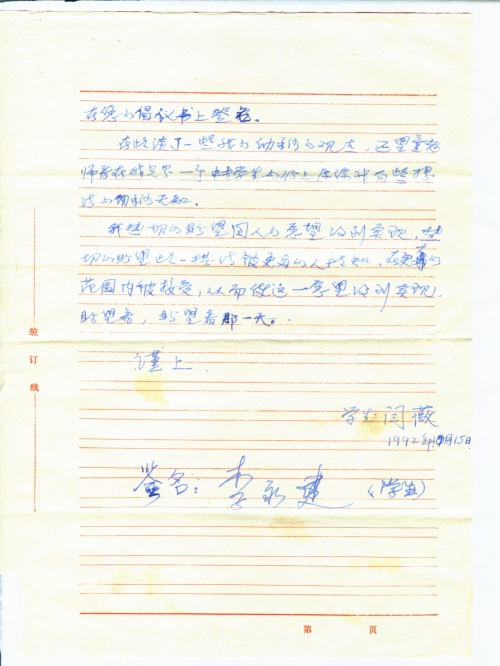 在您的倡议书上签名。
在此谈了一些我的幼稚的观点，还望童老
师看在我只是一个中专学生的份上原谅我有些想
法的幼稚无知。
我热切的盼望国人的愿望得到实现，热
切的盼望这一想法被更多的人所知，在更广的
范围内被接受，从而使这一希望得到实现。
盼望着，盼望着那一天。
谨上
学生：闫薇
1992年10月15日
签名：李永建（学生）
装订线
第 页